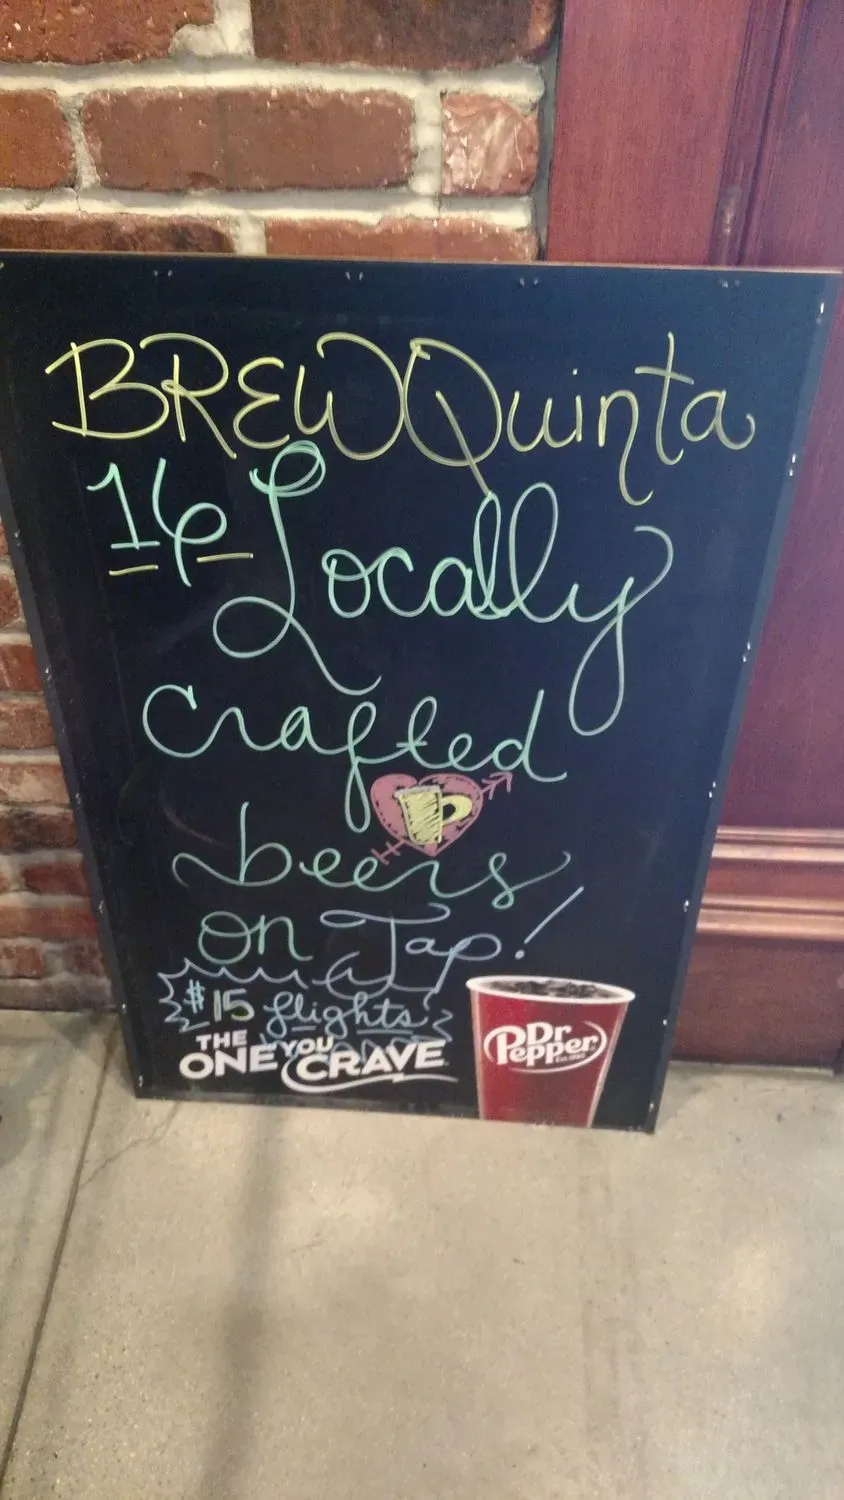 BREWQuinta
16 Locally
crafted
beers
on Tap!
$15 flights
THE
ONE YOU
CRAVE
Dr
Pepper
EST. 1885